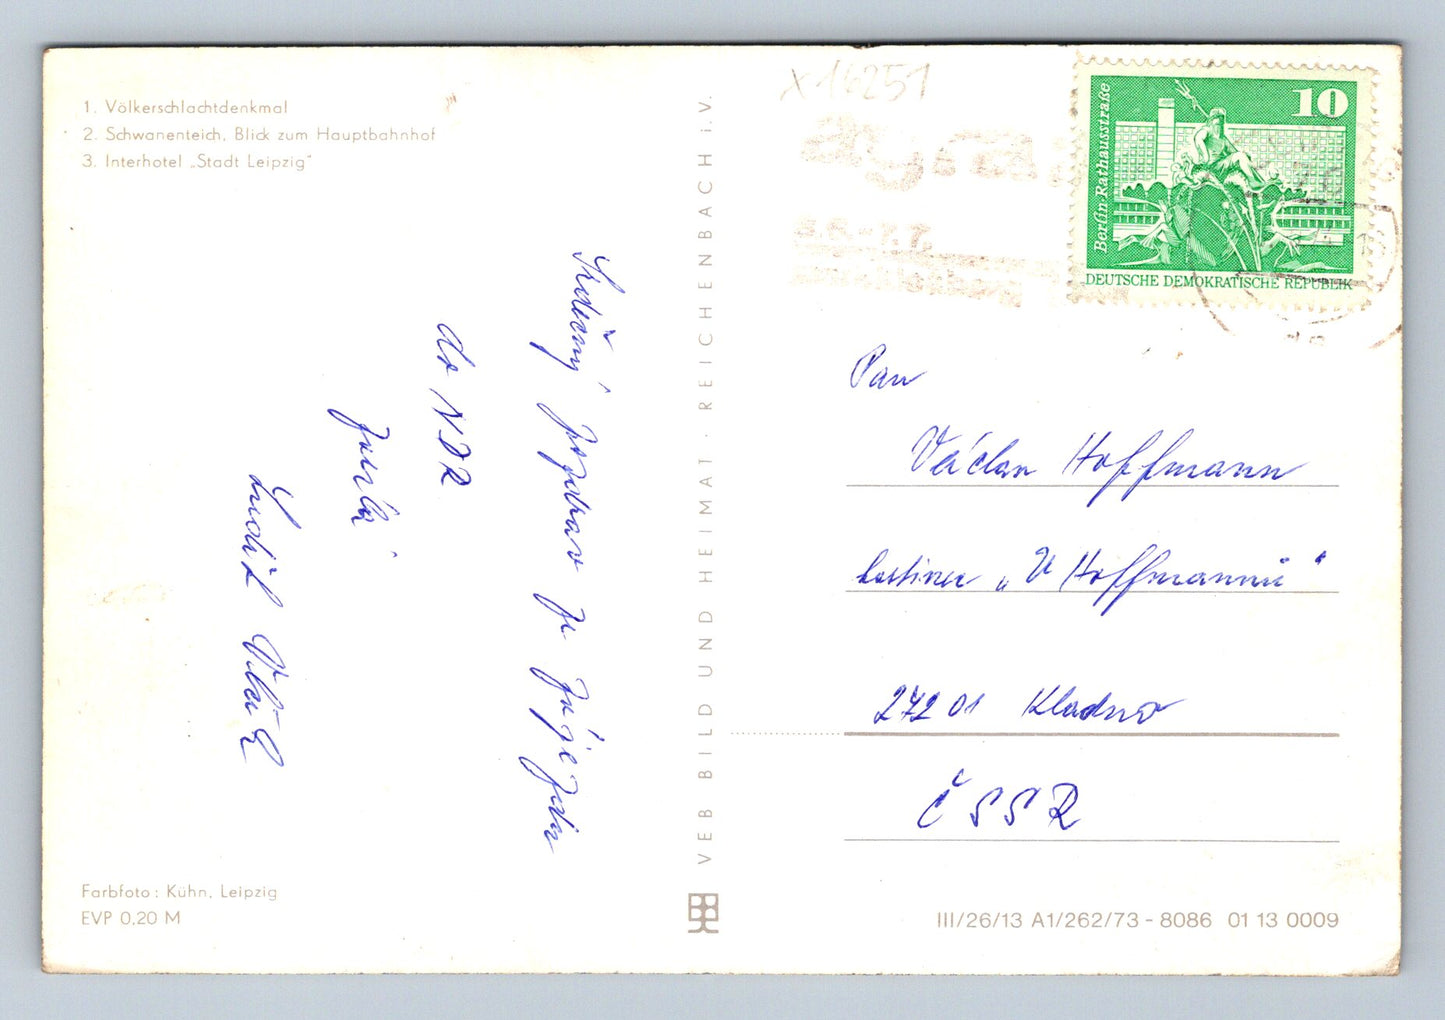 1. Völkerschlachtdenkmal
2. Schwanenteich, Blick zum Hauptbahnhof
3. Interhotel „Stadt Leipzig"
Srdečný pozdrav ze zájezdu
do NDR
Luděk
Farbfoto: Kühn, Leipzig
EVP 0,20 M
VEB BILD UND HEIMAT · REICHENBACH i. V.
x 16251
10
Berlin-Rathausstraße
DEUTSCHE DEMOKRATISCHE REPUBLIK
Pan
Václav Hoffmann
hostinec „U Hoffmannů"
272 01 Kladno
ČSSR
III/26/13 A1/262/73 - 8086 01 13 0009